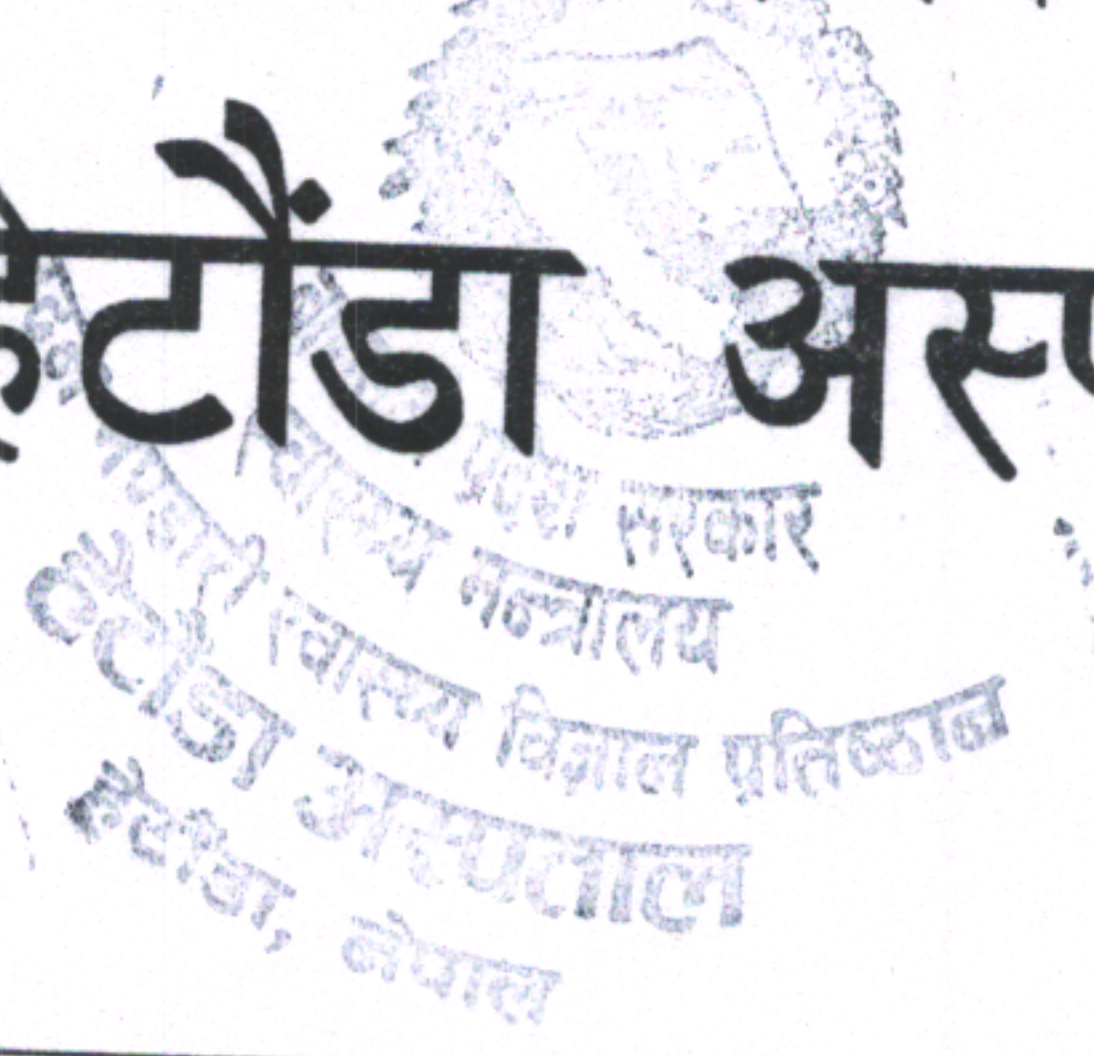 हेटौंडा अस्प
प्रदेश सरकार
स्वास्थ्य मन्त्रालय
स्वास्थ्य विज्ञान प्रतिष्ठान
हेटौंडा अस्पताल
हेटौंडा, नेपाल